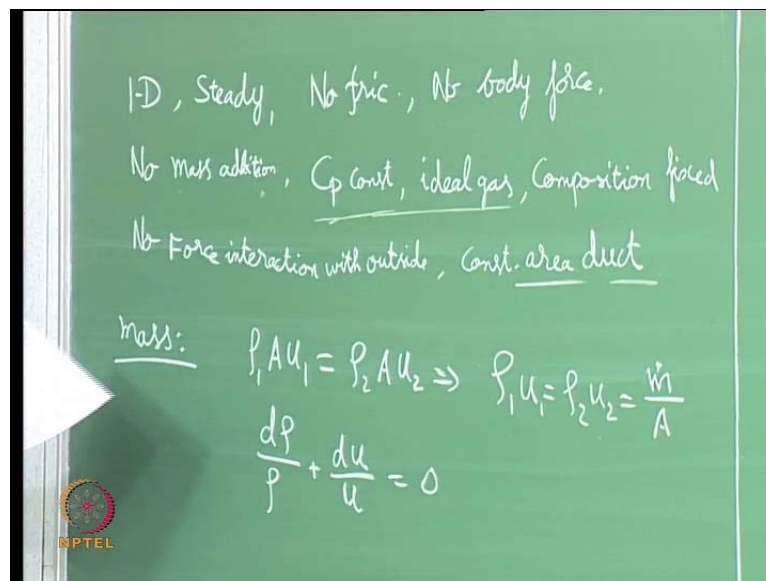 1-D, Steady, No fric., No body force.
No mass addition, Cp const, ideal gas, Composition fixed
No Force interaction with outside, Const. area duct
Mass: ρ₁Au₁ = ρ₂Au₂ ⇒ ρ₁u₁ = ρ₂u₂ = ṁ/A
dρ/ρ + du/u = 0
NPTEL